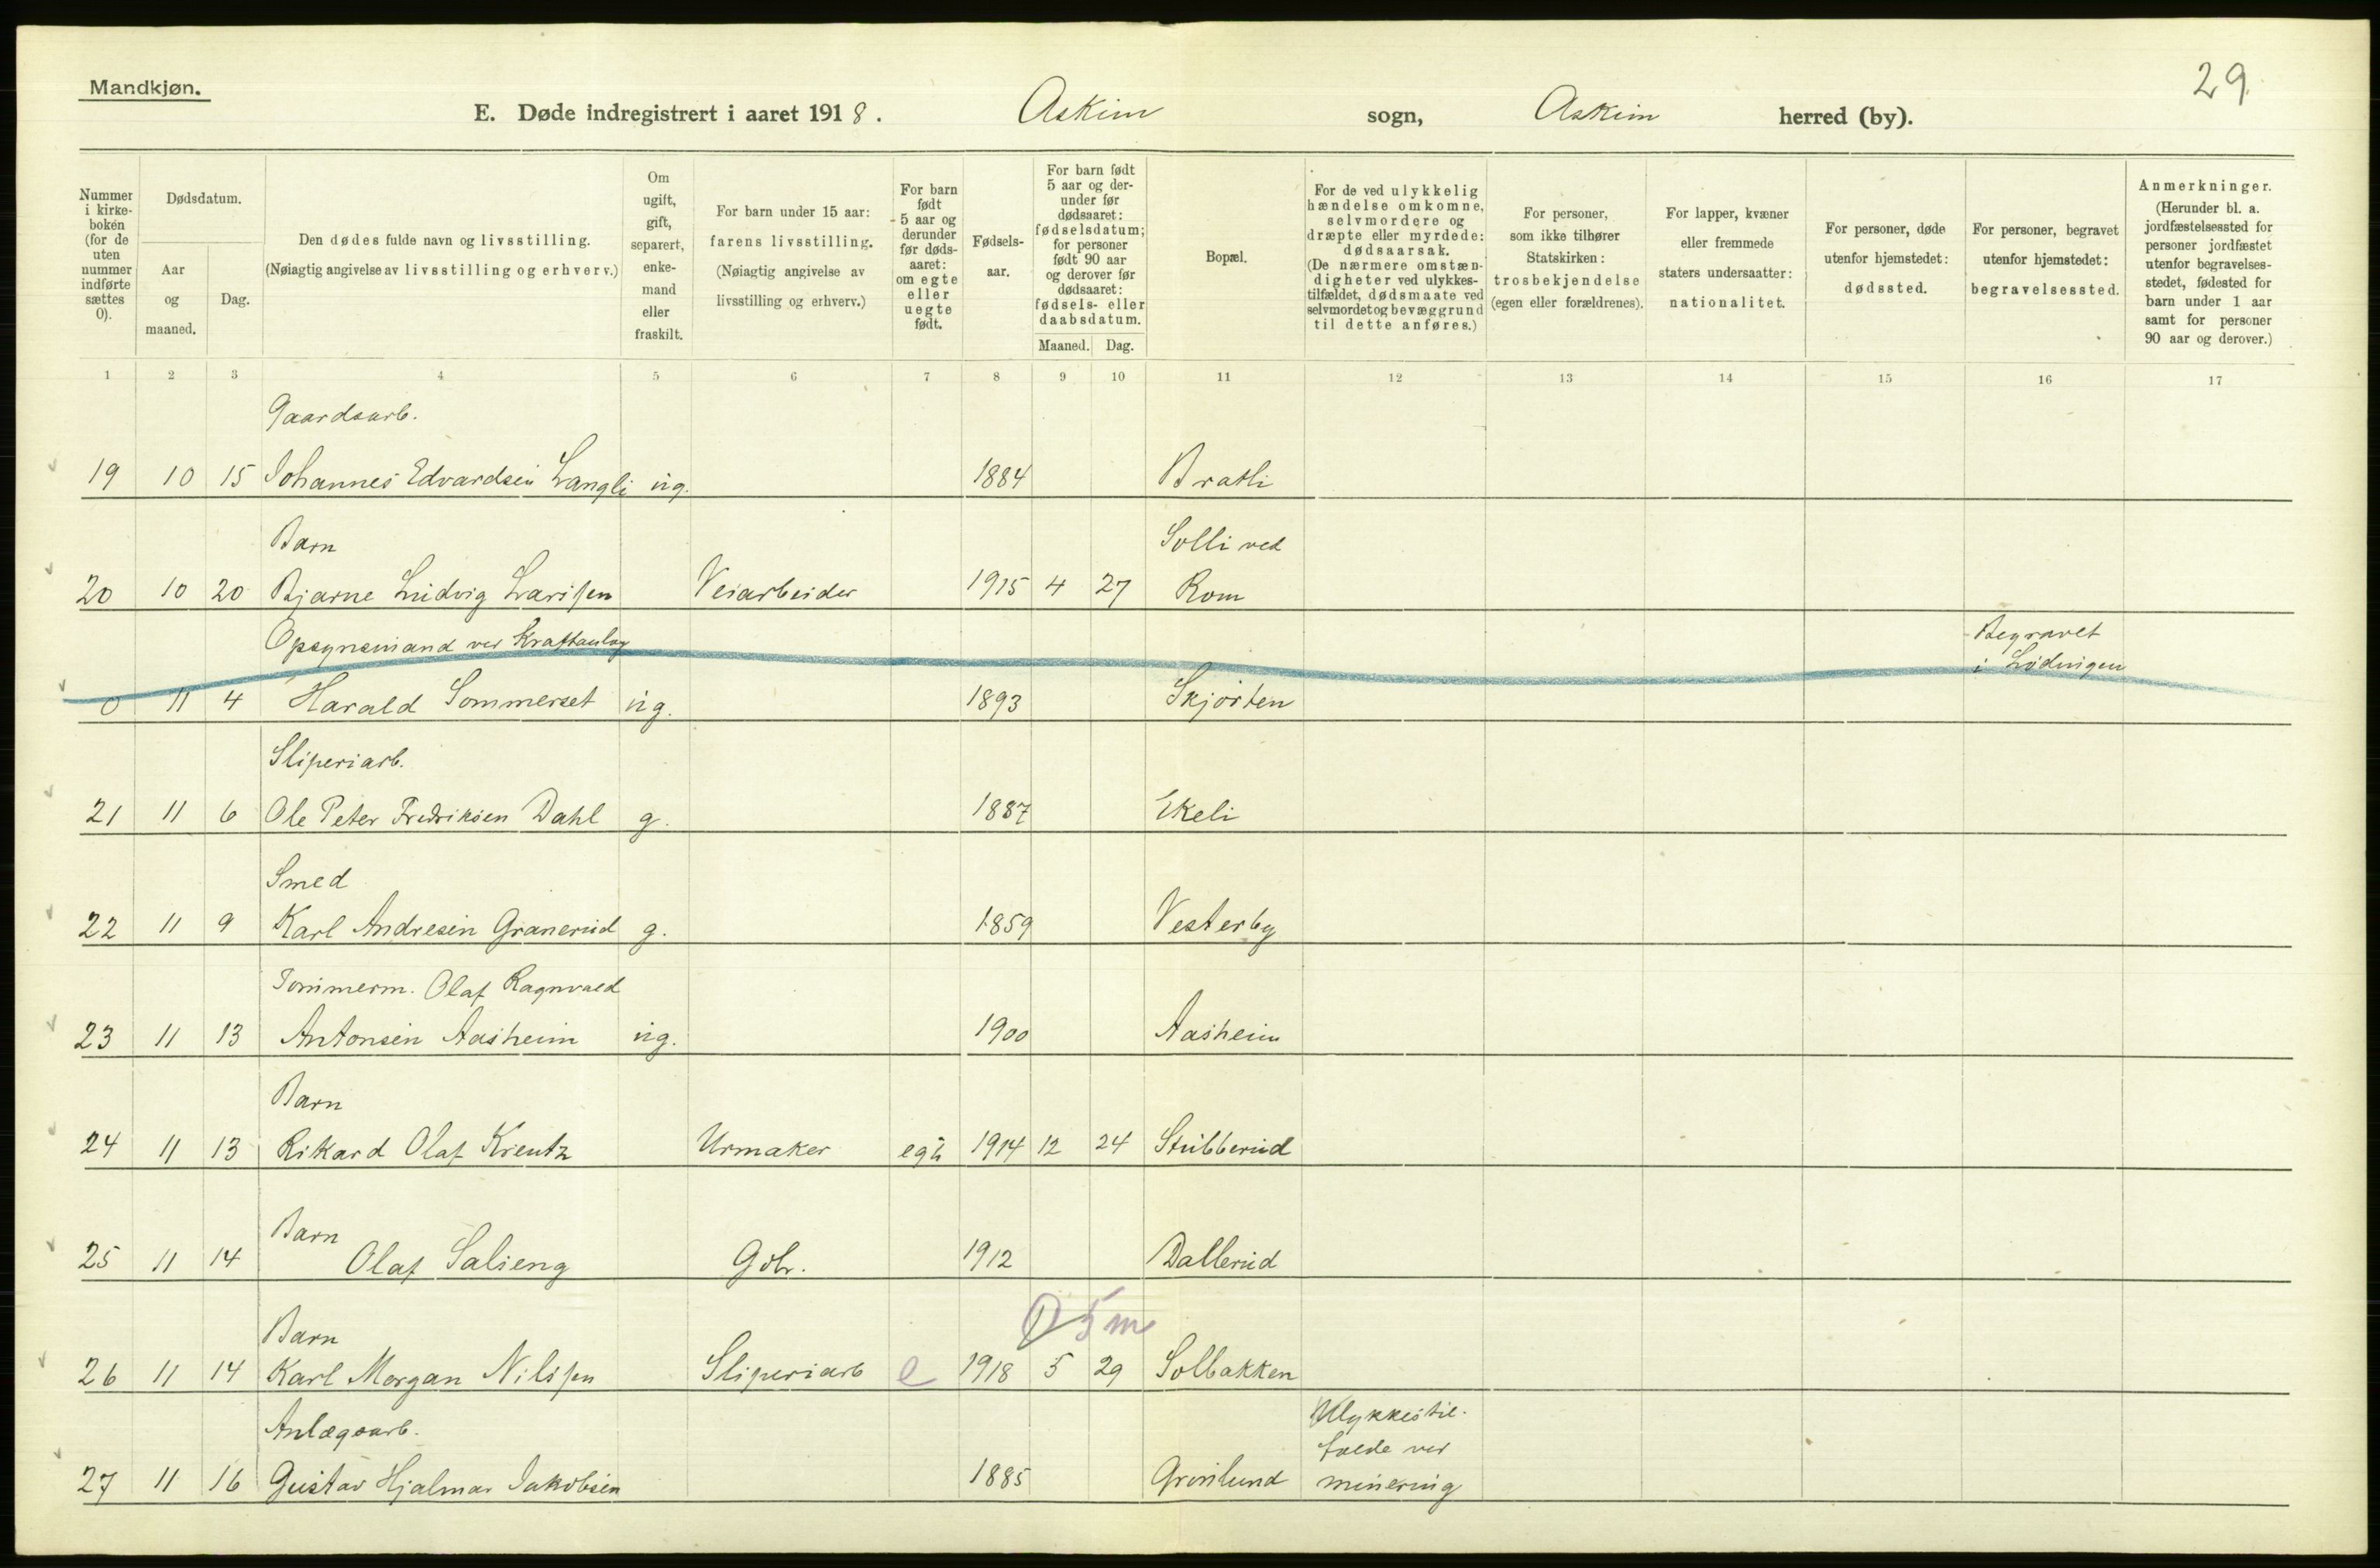 Mandkjøn.
29
E. Døde indregistrert i aaret 1918. Askim sogn, Askim herred (by).
Nummer i kirkeboken (for de uten nummer indførte sættes 0).
Dødsdatum.
Aar og maaned.
Dag.
Den dødes fulde navn og livsstilling.
(Nøiagtig angivelse av livsstilling og erhverv.)
Om ugift, gift, separert, enkemand eller fraskilt.
For barn under 15 aar: farens livsstilling. (Nøiagtig angivelse av livsstilling og erhverv.)
For barn født 5 aar og derunder før dødsaaret: om egte eller uegte født.
Fødselsaar.
For barn født 5 aar og derunder før dødsaaret: fødselsdatum; for personer født 90 aar og derover før dødsaaret: fødsels- eller daabsdatum.
Maaned. Dag.
Bopæl.
For de ved ulykkelig hændelse omkomne, selvmordere og dræpte eller myrdede: dødsaarsak. (De nærmere omstændigheter ved ulykkestilfældet, dødsmaate ved selvmordet og bevæggrund til dette anføres.)
For personer, som ikke tilhører Statskirken: trosbekjendelse (egen eller forældrenes).
For lapper, kvæner eller fremmede staters undersaatter: nationalitet.
For personer, døde utenfor hjemstedet: dødssted.
For personer, begravet utenfor hjemstedet: begravelsessted.
Anmerkninger. (Herunder bl. a. jordfæstelsessted for personer jordfæstet utenfor begravelsesstedet, fødested for barn under 1 aar samt for personer 90 aar og derover.)
1 2 3 4 5 6 7 8 9 10 11 12 13 14 15 16 17
Gaardsarb.
19 10 15 Johannes Edvardsen Langli ug. 1884 Bratli
Barn Solli ved
20 10 20 Bjarne Ludvig Larissen Veiarbeider 1915 4 27 Rom
Opsynsmand ved Kraftanlæg Begravet
i Lødingen
0 11 4 Harald Sommerset ug. 1893 Skjørten
Sliperiarb.
21 11 6 Ole Peter Fredriksen Dahl g. 1887 Ekeli
Smed
22 11 9 Karl Andresen Granerud g. 1859 Vesterby
Tømmerm. Olaf Ragnvald
23 11 13 Antonsen Aasheim ug. 1900 Aasheim
Barn
24 11 13 Rikard Olaf Kreutz Urmaker egte 1914 12 24 Stubberud
Barn
25 11 14 Olaf Salieng Gbr. 1912 Dallerud
5 m
Barn
26 11 14 Karl Morgan Nilssen Sliperiarb e 1918 5 29 Solbakken
Anlægsarb. Ulykkestil-
fælde ved
27 11 16 Gustav Hjalmar Jakobsen 1885 Grønlund minering